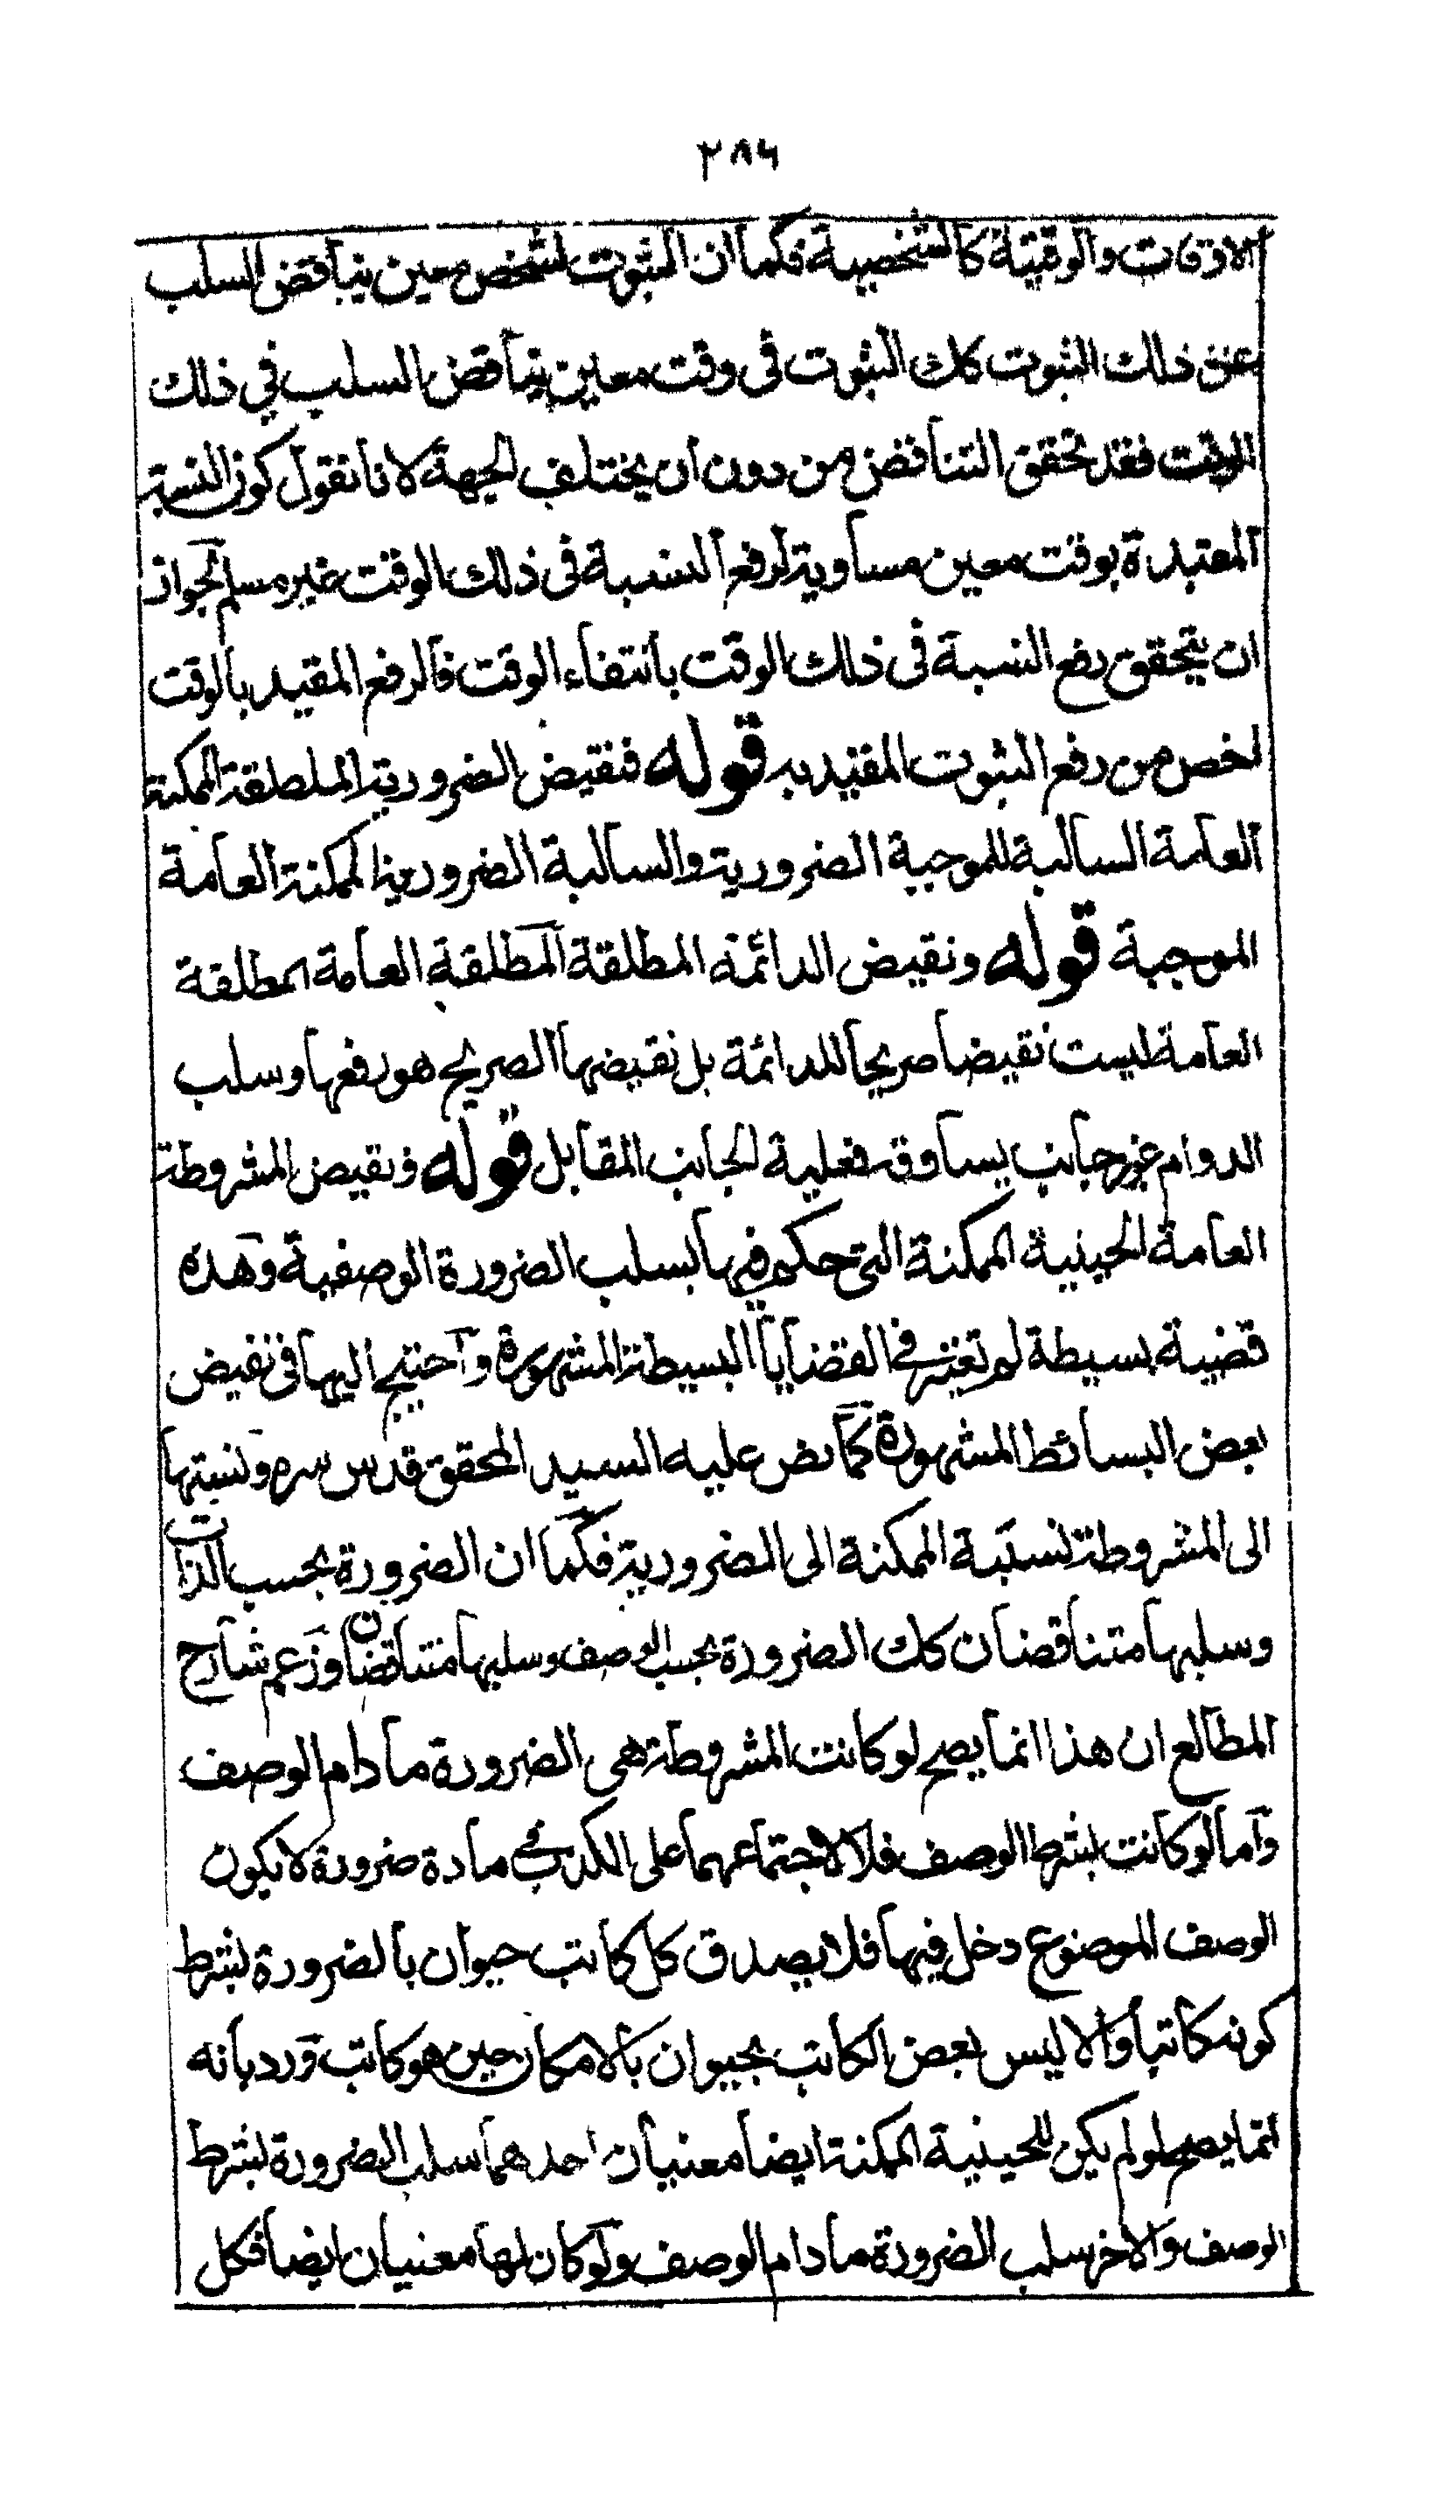 ٢٨٦
الاوقات والوقتية كالشخصية فكما ان الثبوت لشخص معين يناقض السلب
عن ذلك الثبوت كك الثبوت فى وقت معين يناقض السلب في ذلك
الوقت فقد تحقق التناقض من دون ان يختلف الجهة لانا نقول كون النسبة
المقيدة بوقت معين مساوية لرفع النسبة فى ذلك الوقت غير مسلم لجواز
ان يتحقق رفع النسبة فى ذلك الوقت بانتفاء الوقت فالرفع المقيد بالوقت
اخص من رفع الثبوت المقيد به قوله فنقيض الضرورية المطلقة الممكنة
العامة السالبة للموجبة الضرورية والسالبة الضرورية الممكنة العامة
الموجبة قوله ونقيض الدائمة المطلقة المطلقة العامة المطلقة
العامة ليست نقيضا صريحا للدائمة بل نقيضها الصريح هو رفعها وسلب
الدوام عن جانب يساوق فعلية الجانب المقابل قوله ونقيض المشروطة
العامة الحينية الممكنة التى حكم فيها بسلب الضرورة الوصفية وهذه
قضية بسيطة لم تعتبر فى القضايا البسيطة المشهورة واحتيج اليها فى نقيض
بعض البسائط المشهورة كما نص عليه السيد المحقق قدس سره ونسبتها
الى المشروطة نسبة الممكنة الى الضرورية فكما ان الضرورة بحسب الذات
وسلبها متناقضان كك الضرورة بحسب الوصف وسلبها متناقضان وزعم شارح
المطالع ان هذا انما يصح لو كانت المشروطة هى الضرورة ما دام الوصف
واما لو كانت بشرط الوصف فلا لاجتماعهما على الكذب فى مادة ضرورة لا يكون
الوصف الموضوع دخل فيها فلا يصدق كل كاتب حيوان بالضرورة بشرط
كونه كاتبا ولا ليس بعض الكاتب بحيوان بالامكان حين هو كاتب ورد بانه
انما يصح لو لم يكن للحينية الممكنة ايضا معنيان احدهما سلب الضرورة بشرط
الوصف والاخر سلب الضرورة ما دام الوصف ولو كان لها معنيان ايضا فكل